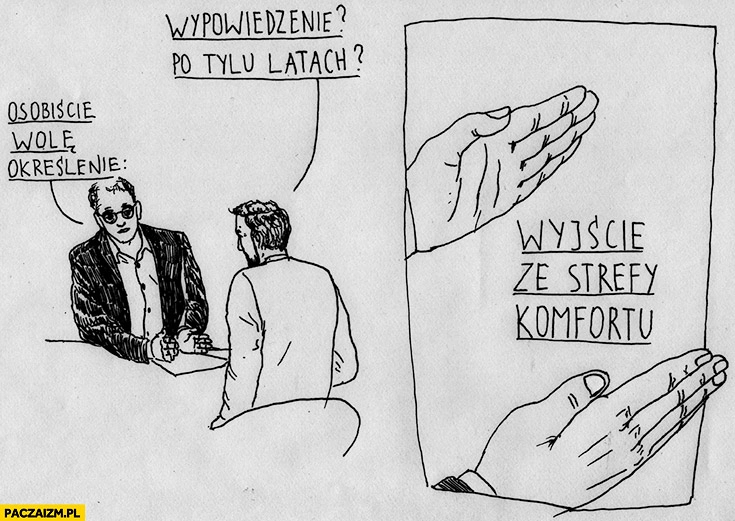 WYPOWIEDZENIE?
PO TYLU LATACH?
OSOBIŚCIE
WOLĘ
OKREŚLENIE:
WYJŚCIE
ZE STREFY
KOMFORTU
PACZAIZM.PL